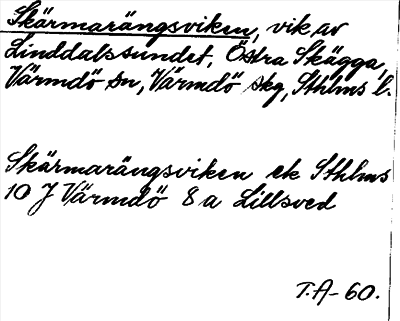 Skärmarängsviken, vik av
Linddalssundet, Östra Skägga,
Värmdö sn, Värmdö skg, Sthlms l.
Skärmarängsviken ek Sthlms
10 J Värmdö 8 a Lillsved
T.A-60.